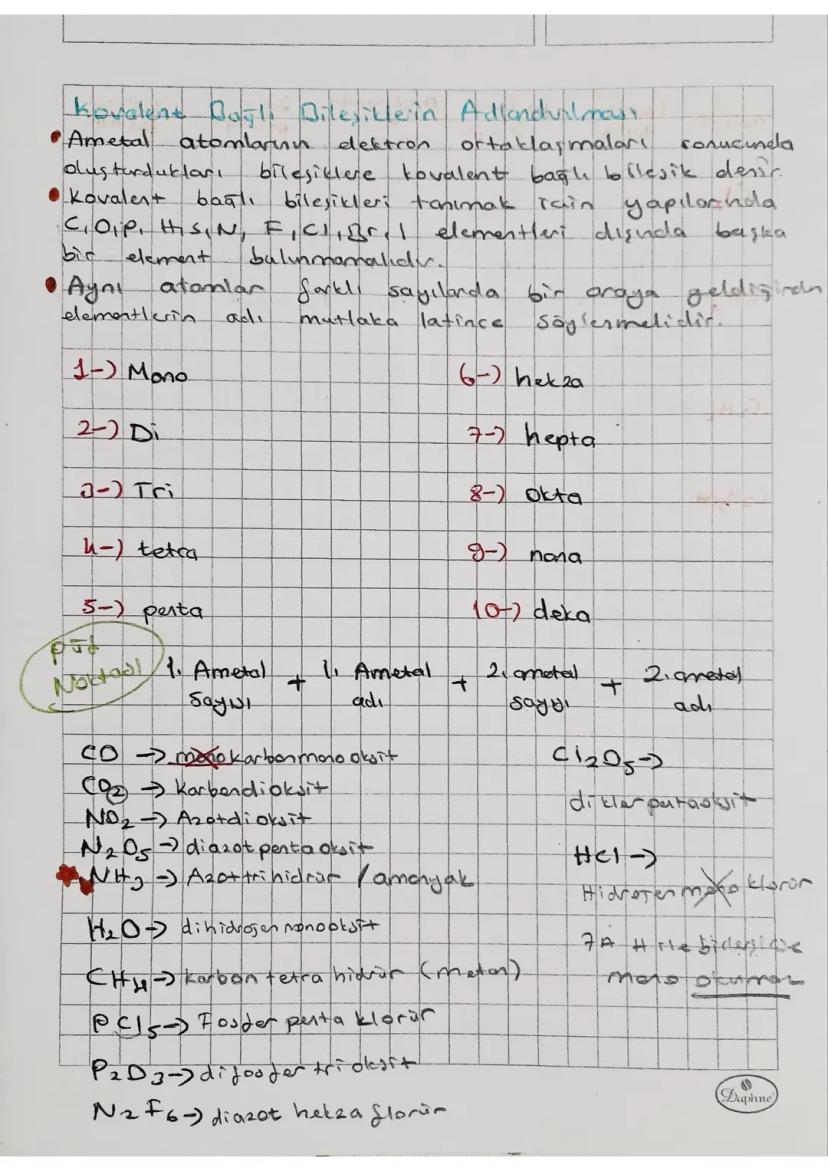 Kovalent Bağlı Bileşiklerin Adlandırılması
• Ametal atomlarının elektron ortaklaşmaları sonucunda
oluşturdukları bileşiklere kovalent bağlı bileşik denir.
• Kovalent bağlı bileşikleri tanımak için yapılarında
C, O, P, H, S, N, F, Cl, Br, I elementleri dışında başka
bir element bulunmamalıdır.
• Aynı atomlar farklı sayılarda bir araya geldiğinden
elementlerin adı mutlaka latince söylenmelidir.
1-) Mono
6-) hekza
2-) Di
7-) hepta
3-) Tri
8-) okta
4-) tetra
9-) nona
5-) penta
10-) deka
püf
Noktası
1. Ametal + 1. Ametal + 2. ametal + 2. ametal
sayısı adı sayısı adı
CO → mono karbonmono oksit
CO2 → Karbondioksit
NO2 → Azotdioksit
N2O5 → diazot penta oksit
NH3 → Azot trihidrür / amonyak
H2O → dihidrojen monooksit
CH4 → karbon tetra hidrür (metan)
PCl5 → Fosfor penta klorür
P2O3 → difosfor tri oksit
N2F6 → diazot hekza florür
Cl2O5 →
diklor pentaoksit
HCl →
Hidrojen mono klorür
7A H ile
mono okunmaz
Daphne